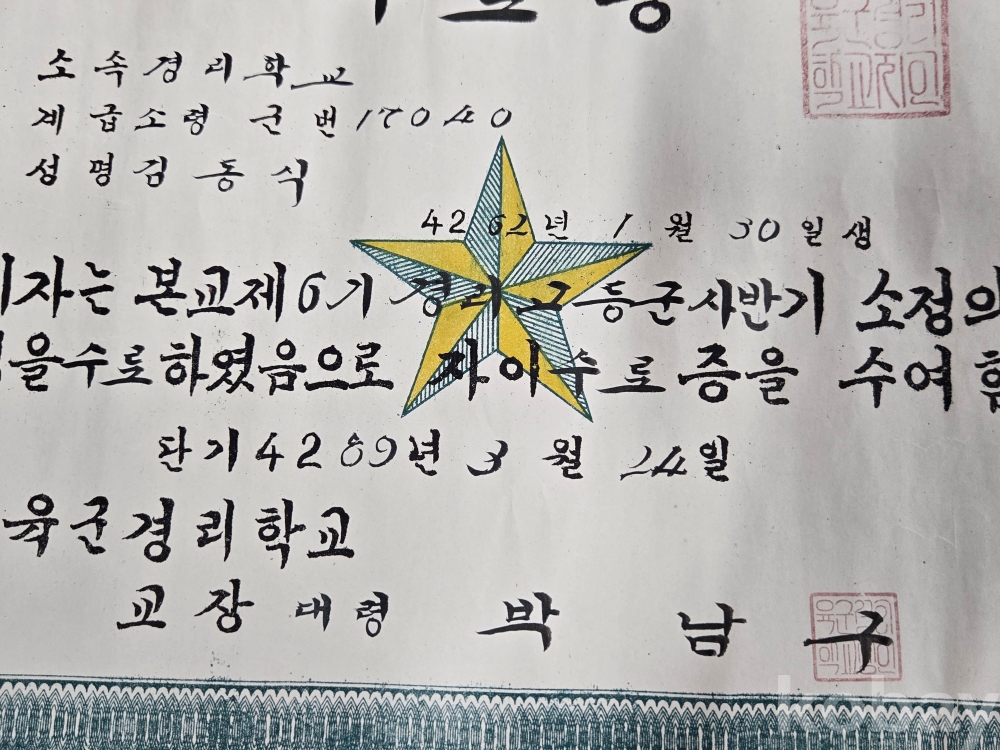 소속경리학교
계급소령 군번17040
성명김동식
4262년 1월 30일생
자는 본교제6기 경리고등군사반기 소정의
을수료하였음으로 자이수료증을 수여함
단기4289년 3월 24일
육군경리학교
교장대령 박남구